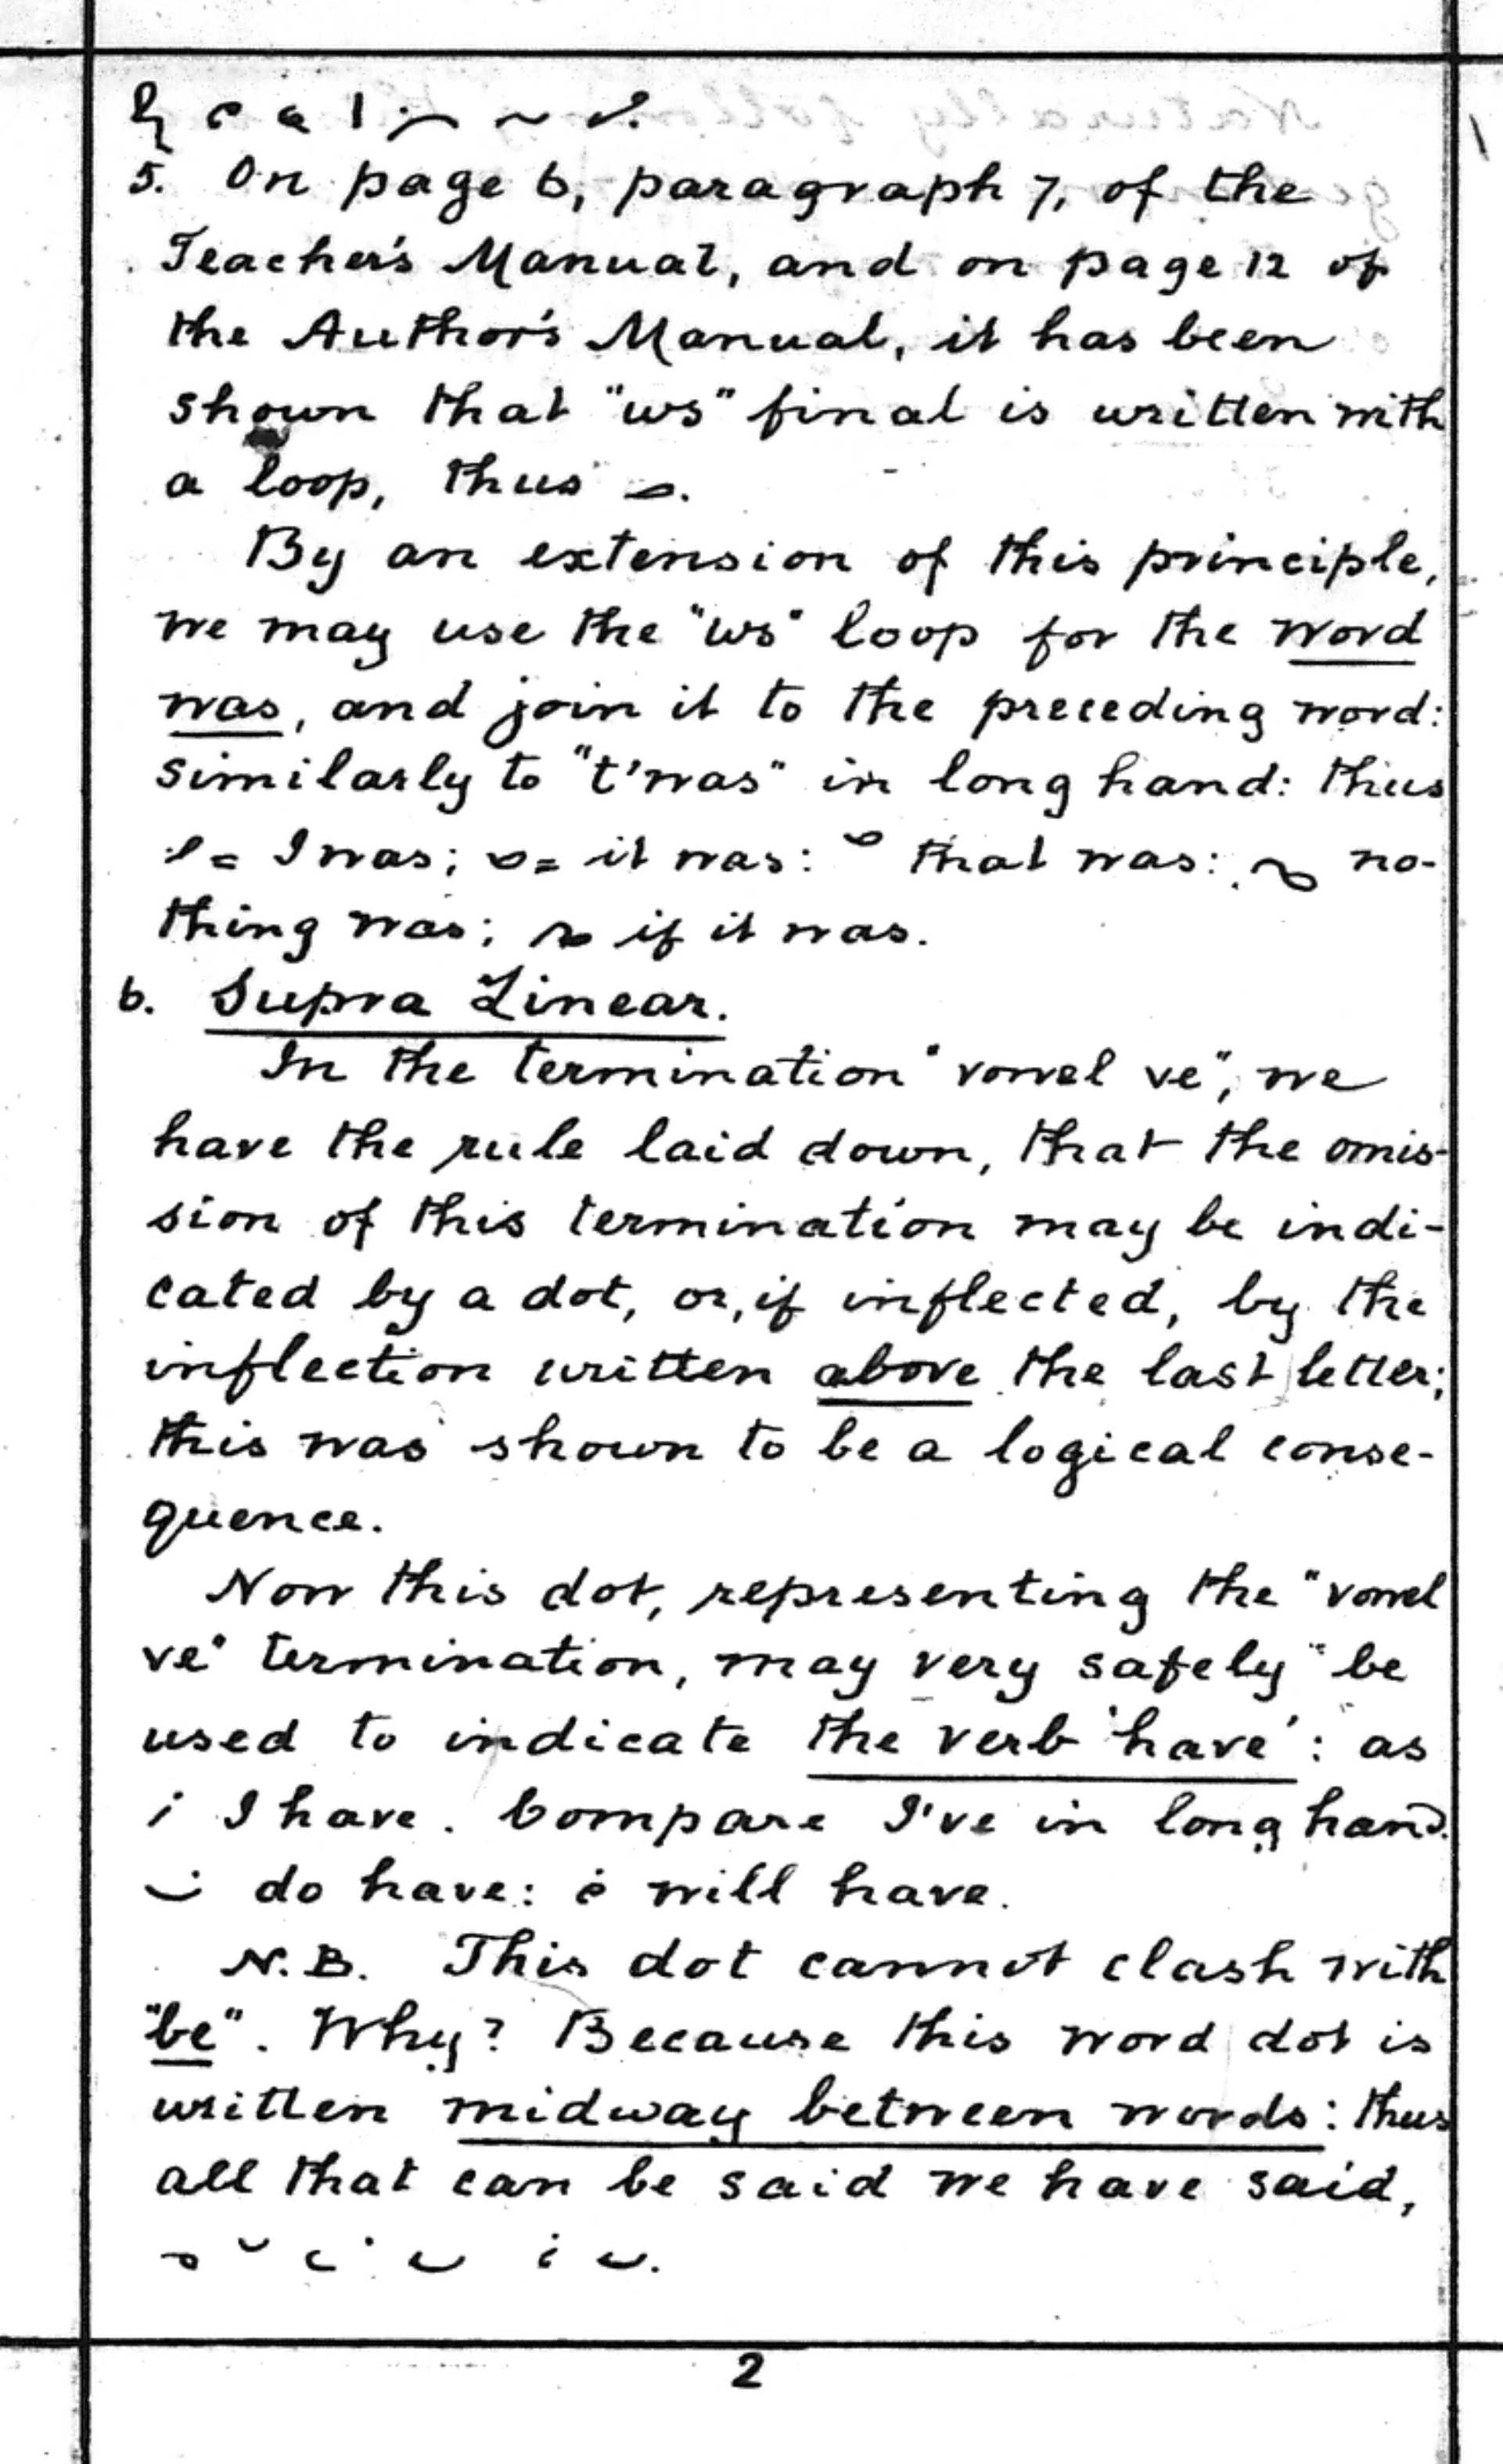 5. On page 6, paragraph 7, of the
Teacher's Manual, and on page 12 of
the Author's Manual, it has been
shown that "ws" final is written with
a loop, thus
By an extension of this principle,
we may use the "ws" loop for the word
was, and join it to the preceding word:
similarly to "t'was" in long hand: thus
= I was; = it was: that was: no-
thing was; if it was.
6. Supra Linear.
In the termination "vowel ve", we
have the rule laid down, that the omis-
sion of this termination may be indi-
cated by a dot, or, if inflected, by the
inflection written above the last letter;
this was shown to be a logical conse-
quence.
Now this dot, representing the "vowel
ve" termination, may very safely be
used to indicate the verb 'have': as
I have. Compare I've in long hand.
do have: will have.
N.B. This dot cannot clash with
"be". Why? Because this word dot is
written midway between words: thus
all that can be said we have said,
2